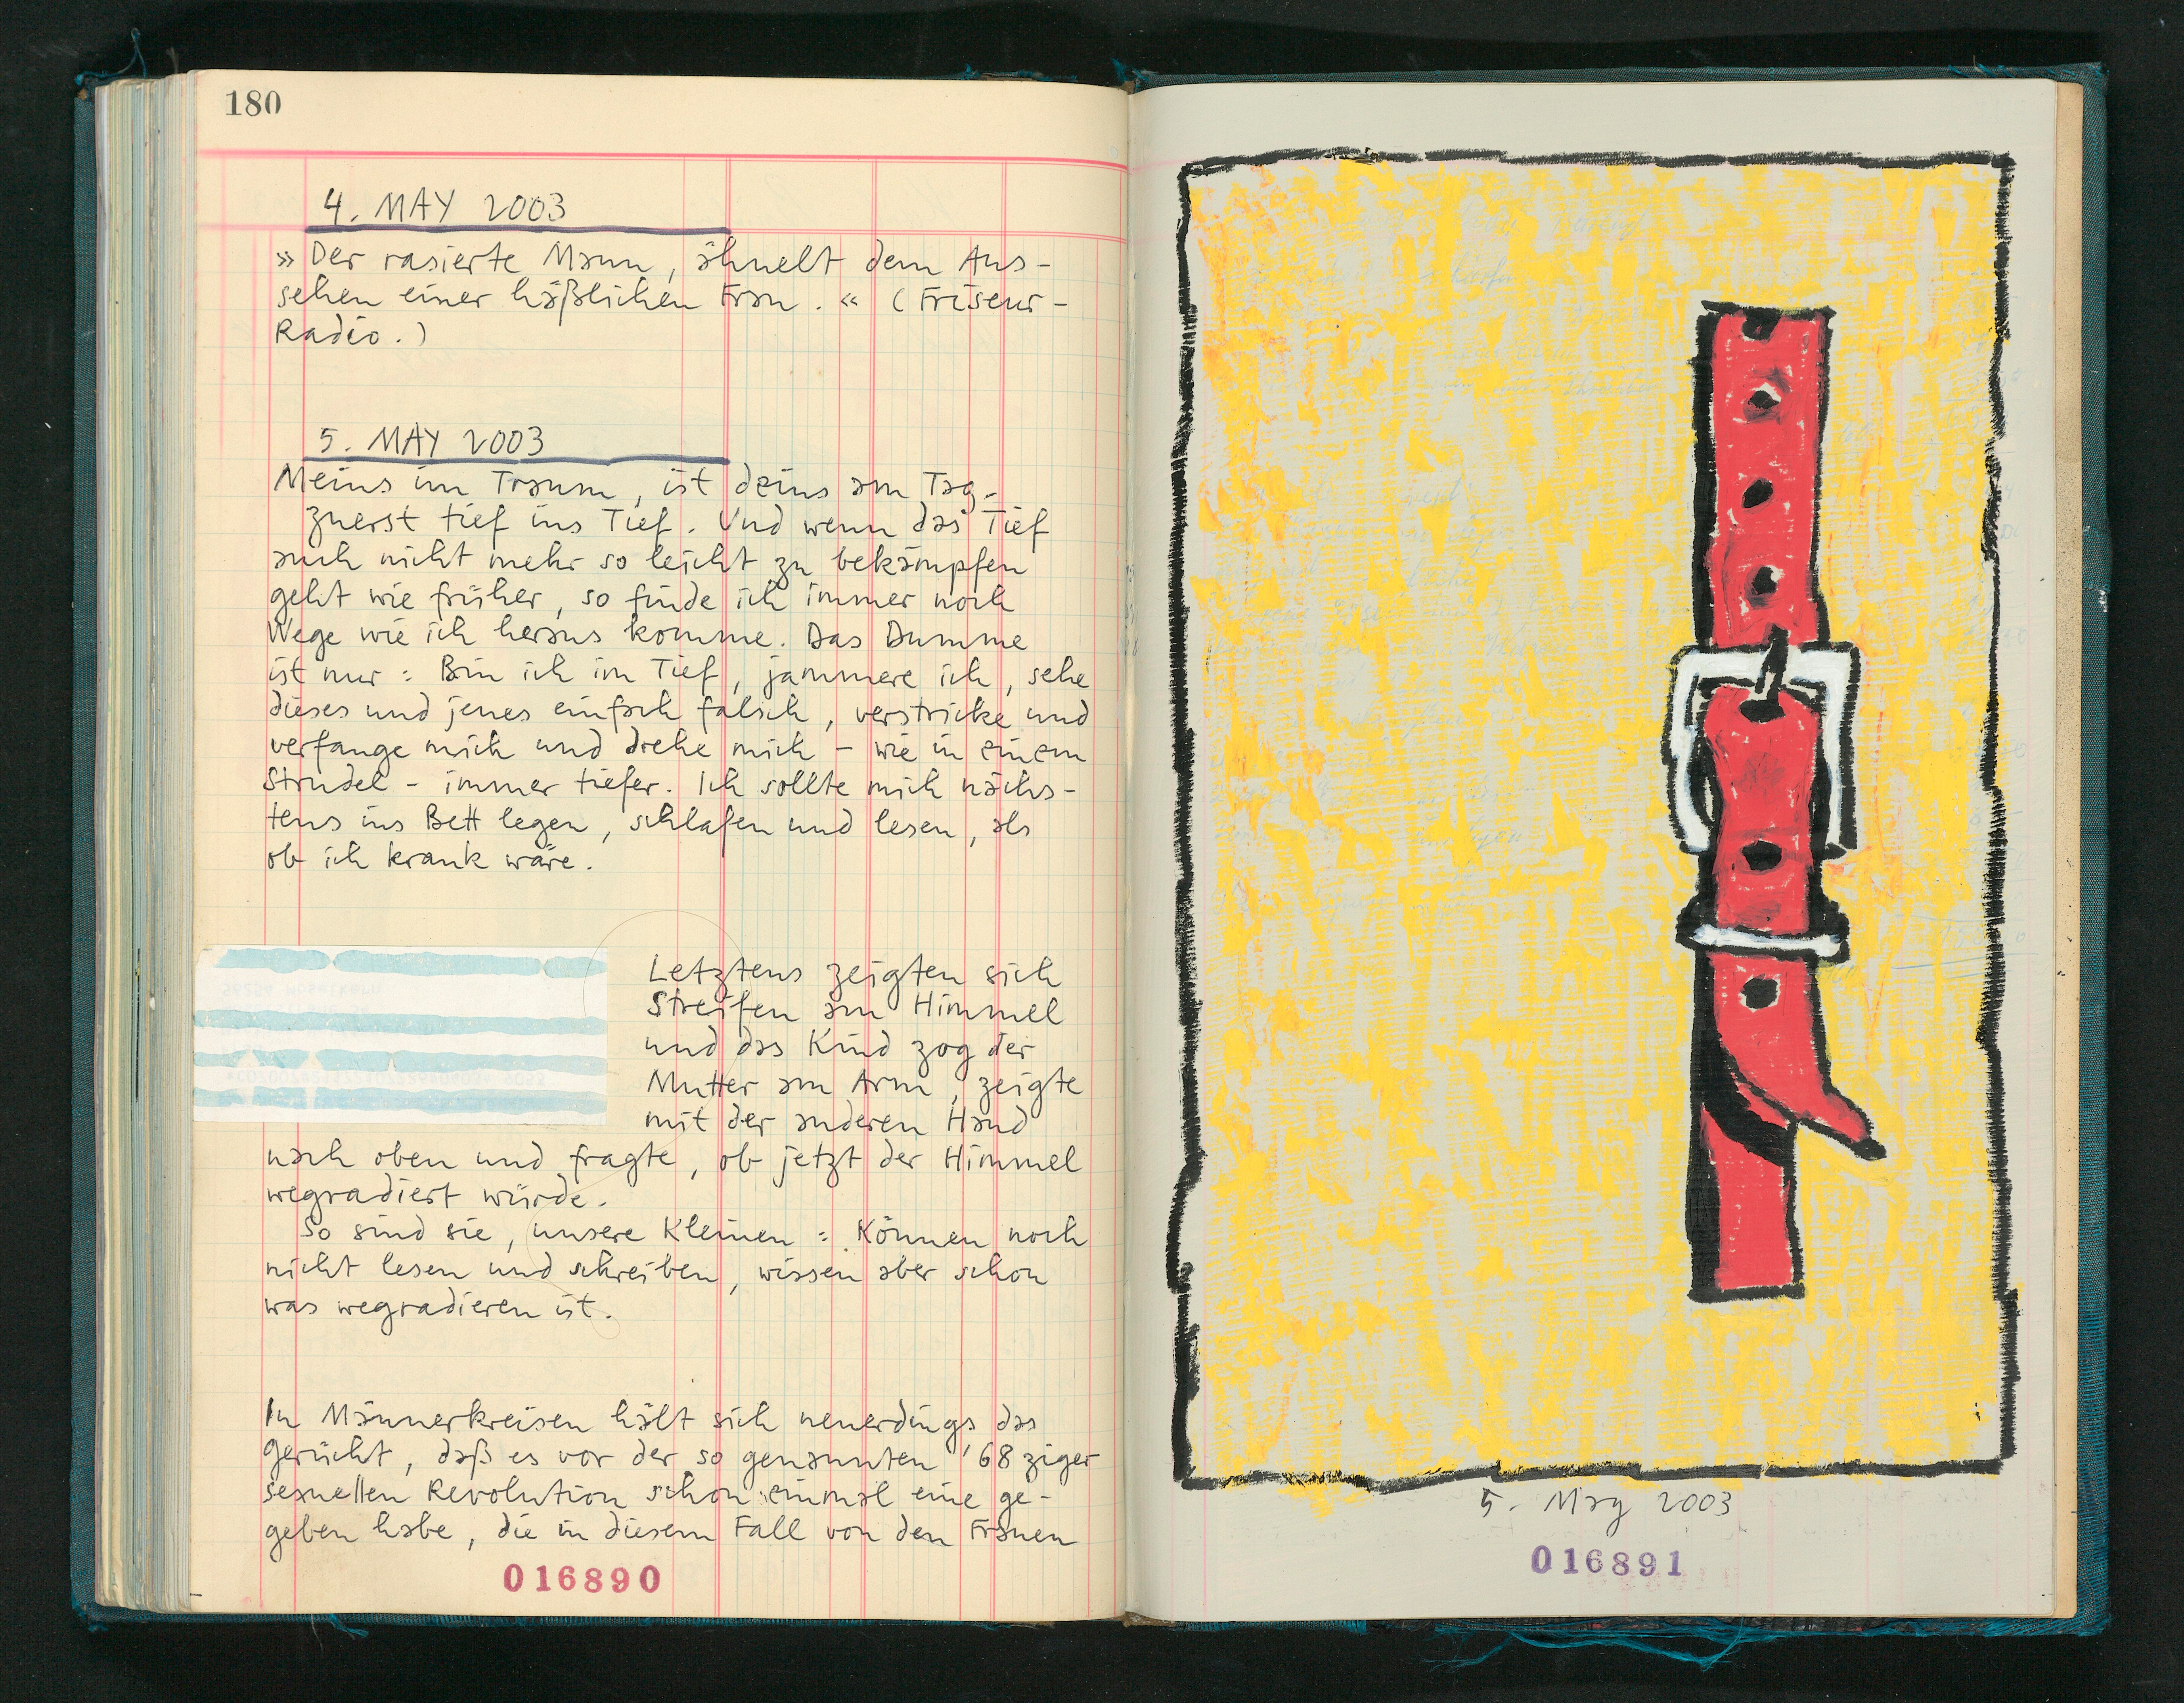 180
4. MAY 2003
» Der rasierte Mann, ähnelt dem Aus-
sehen einer häßlichen Frau. « (Friseur-
Radio.)
5. MAY 2003
Meins im Traum, ist deins am Tag.
zuerst tief ins Tief. Und wenn das Tief
auch nicht mehr so leicht zu bekämpfen
geht wie früher, so finde ich immer noch
Wege wie ich heraus komme. Das Dumme
ist nur: Bin ich im Tief, jammere ich, sehe
dieses und jenes einfach falsch, verstricke und
verfange mich und drehe mich – wie in einem
Strudel – immer tiefer. Ich sollte mich nächs-
tens ins Bett legen, schlafen und lesen, als
ob ich krank wäre.
Letztens zeigten sich
Streifen am Himmel
und das Kind zog der
Mutter am Arm, zeigte
mit der anderen Hand
nach oben und fragte, ob jetzt der Himmel
wegradiert würde.
So sind sie, unsere Kleinen: Können noch
nicht lesen und schreiben, wissen aber schon
was wegradieren ist.
In Männerkreisen hält sich neuerdings das
Gerücht, daß es vor der so genannten '68ziger
sexuellen Revolution schon einmal eine ge-
geben habe, die in diesem Fall von den Frauen
016890
5. May 2003
016891